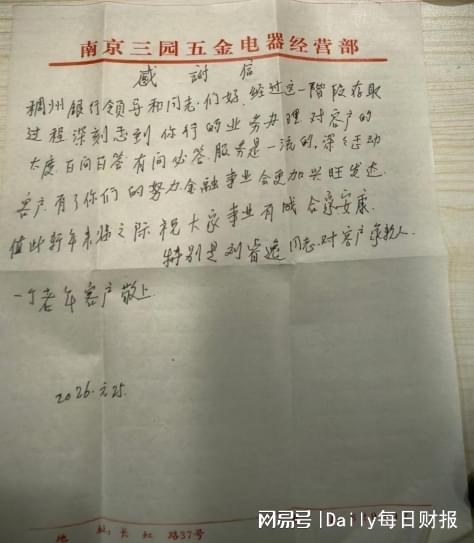 南京三园五金电器经营部
感 謝 信
稠州银行领导和同志们好.经过这一階段存取
过程深刻志到你行的业务办理对客户的
太度百问日答有问必答.服务是一流的,深上动
客户.有了你们的努力金融事业会更加兴旺发达.
值此新年来临之际祝大家事业有成合家安康.
特别是刘睿逸同志.对客户亲教人.
一个老年客户敬上.
2026.元25.
地 址:长虹 路37号
网易号|Daily每日财报